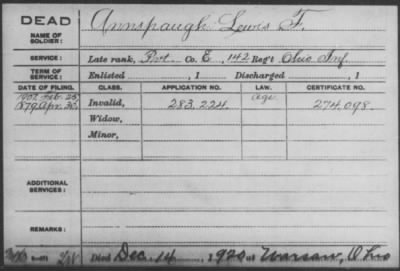 DEAD
NAME OF SOLDIER: Annspaugh Lewis F.
SERVICE: Late rank, Pvt. Co. E, 142 Reg't Ohio Inf.
TERM OF SERVICE: Enlisted , 1 Discharged , 1
DATE OF FILING. CLASS. APPLICATION NO. LAW. CERTIFICATE NO.
1907 Feb. 25 Age
1879 Apr. 30. Invalid, 283,224. 274,098.
Widow,
Minor,
ADDITIONAL SERVICES:
REMARKS:
Died Dec. 14, 1920 at Warsaw, Ohio